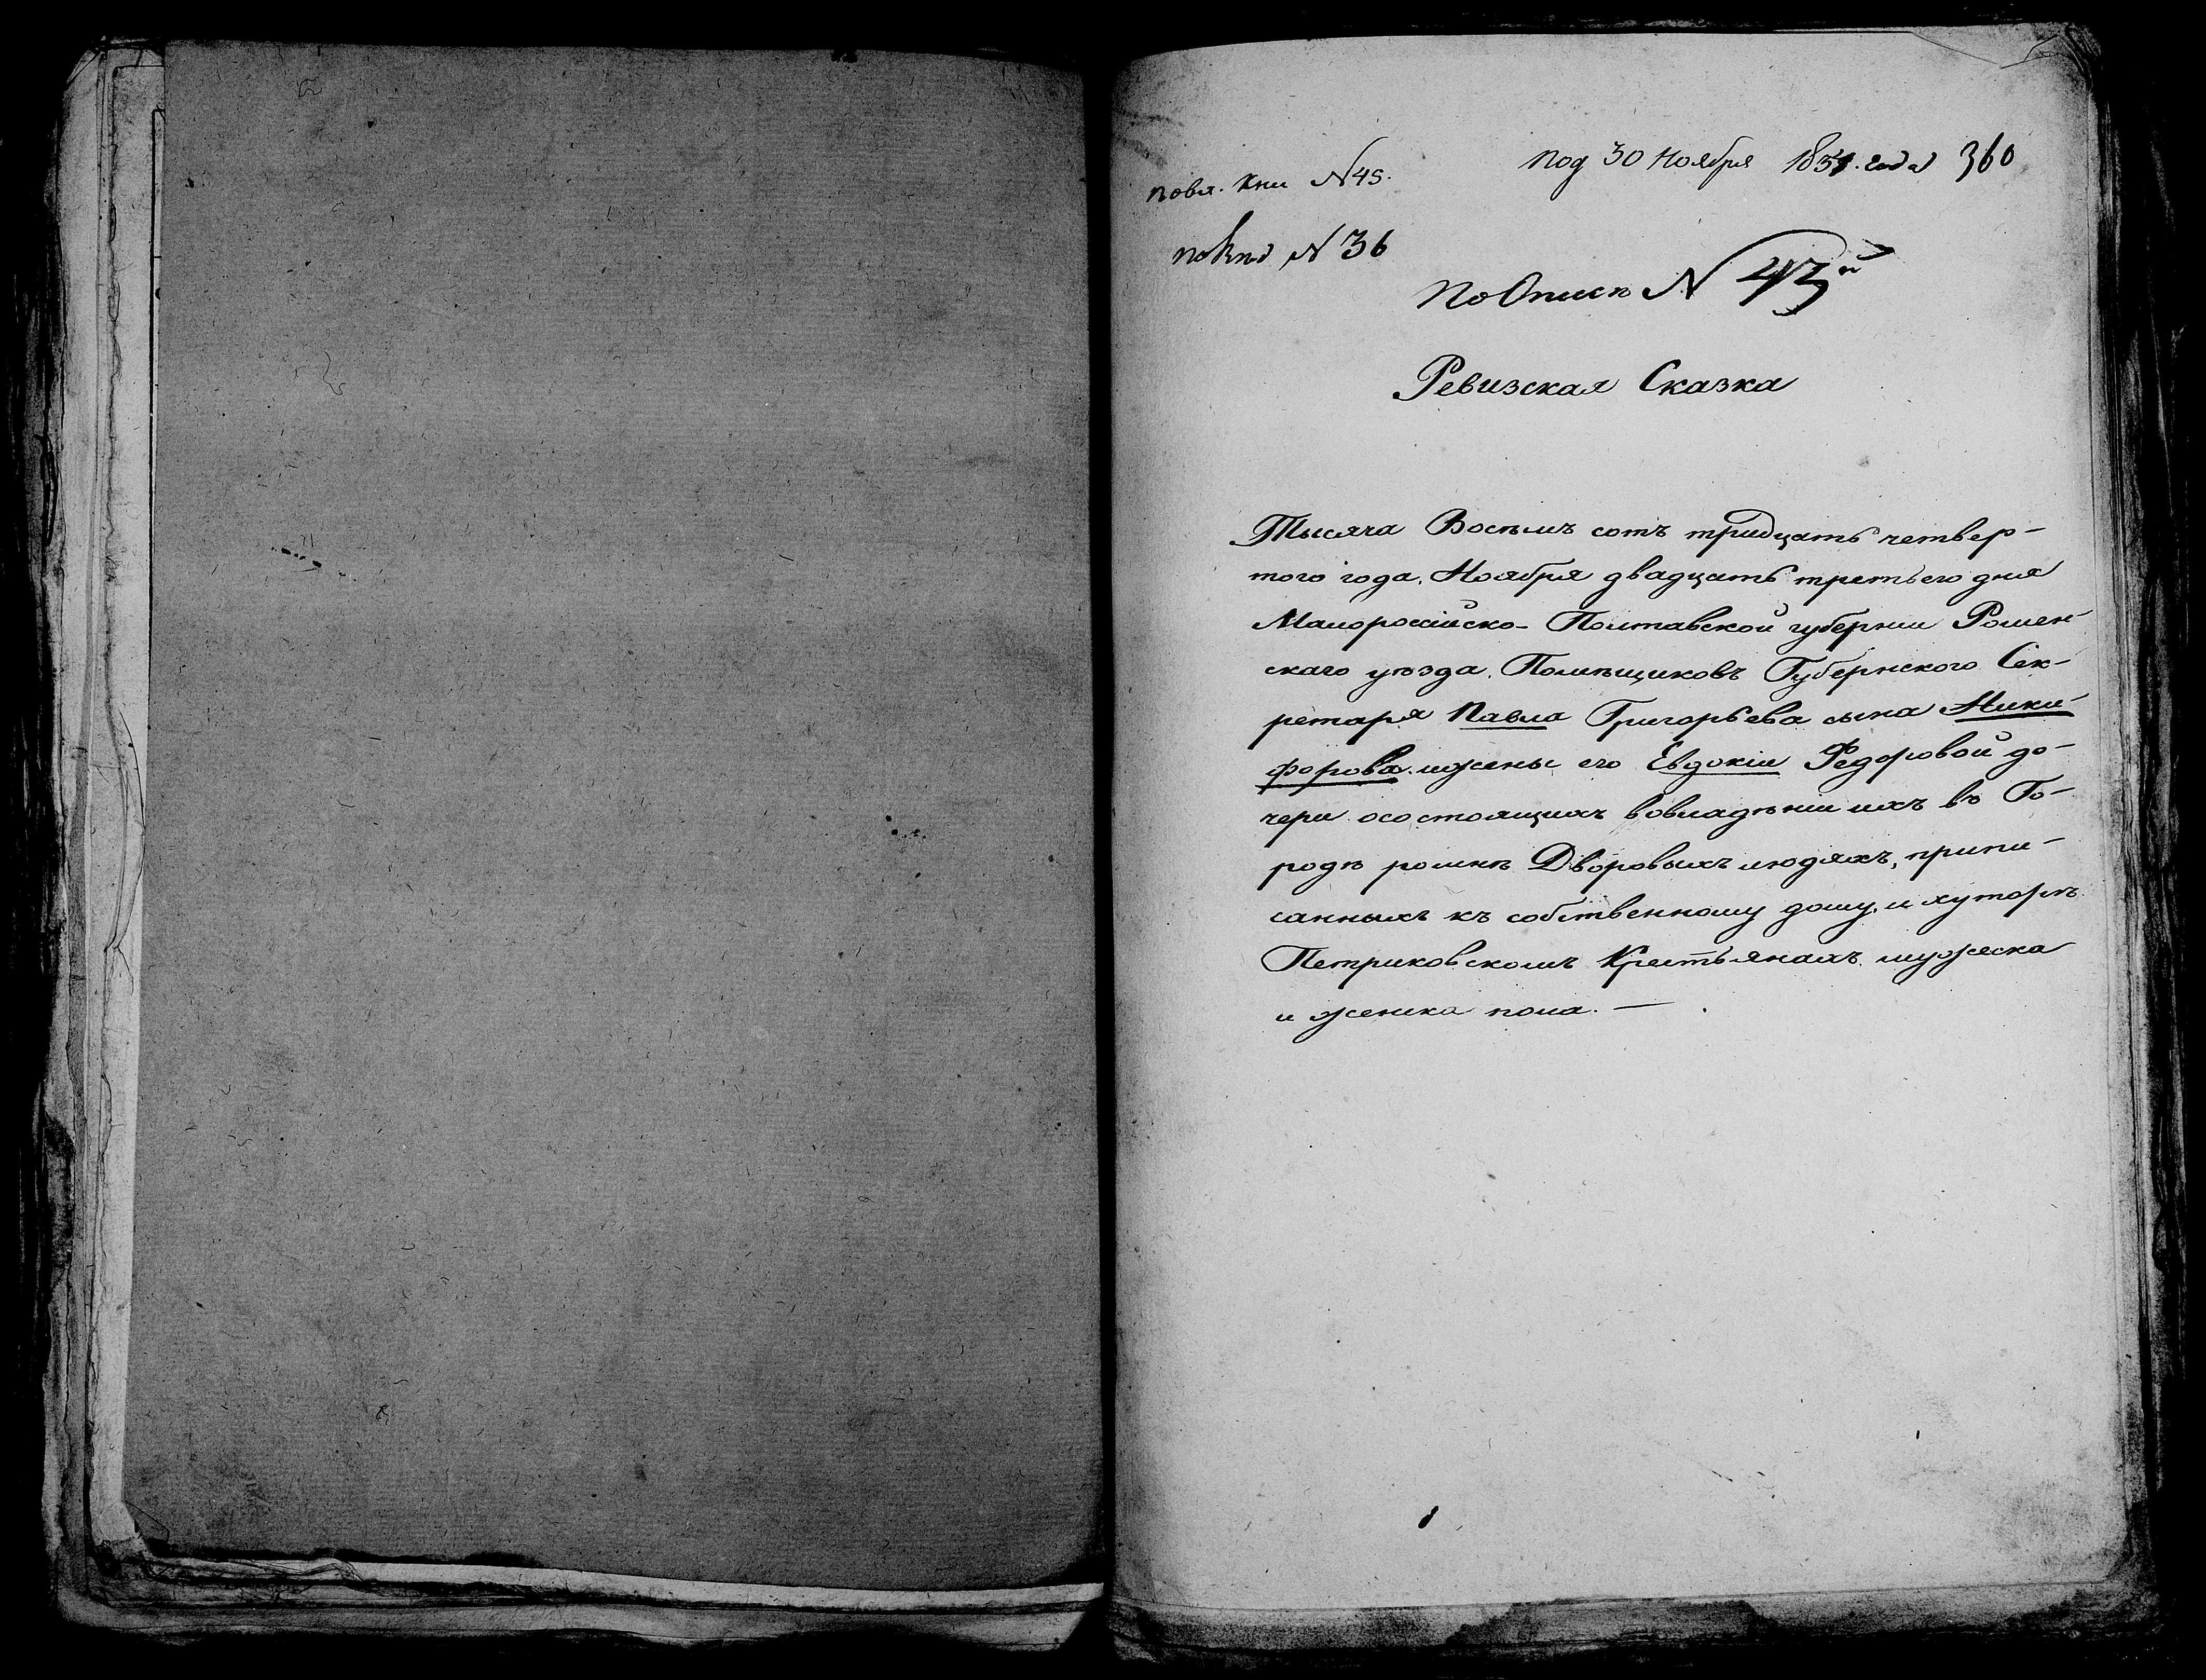 Под 30 Ноября 1834. года 360
по вх. кни №45.
по Кни №36
По Описи № 43й
Ревизская Сказка
Тысяча Восѣмъ сотъ тридцать четвер-
того года. Ноября двадцать третьего дня
Малоросійско- Полтавской губерніи Ромен-
скаго уѣзда. Помѣщиковъ Губернского Сек-
ретаря Павла Григорьева сына Ники-
форова. и жены его Евдокіи Федоровой до-
чери о состоящихъ во владѣніи ихъ въ Го-
родѣ ромнѣ Дворовыхъ людяхъ, припи-
санныхъ къ собственному дому, и хуторѣ
Петриковскомъ Крестьянахъ мужеска
и женска пола. —